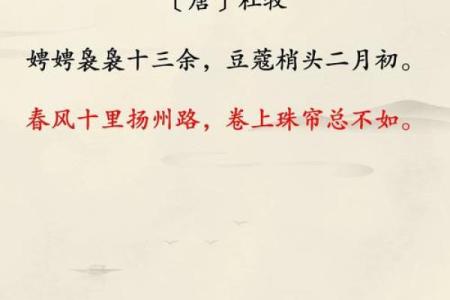 〔唐〕杜牧
娉娉袅袅十三余，豆蔻梢头二月初。
春风十里扬州路，卷上珠帘总不如。